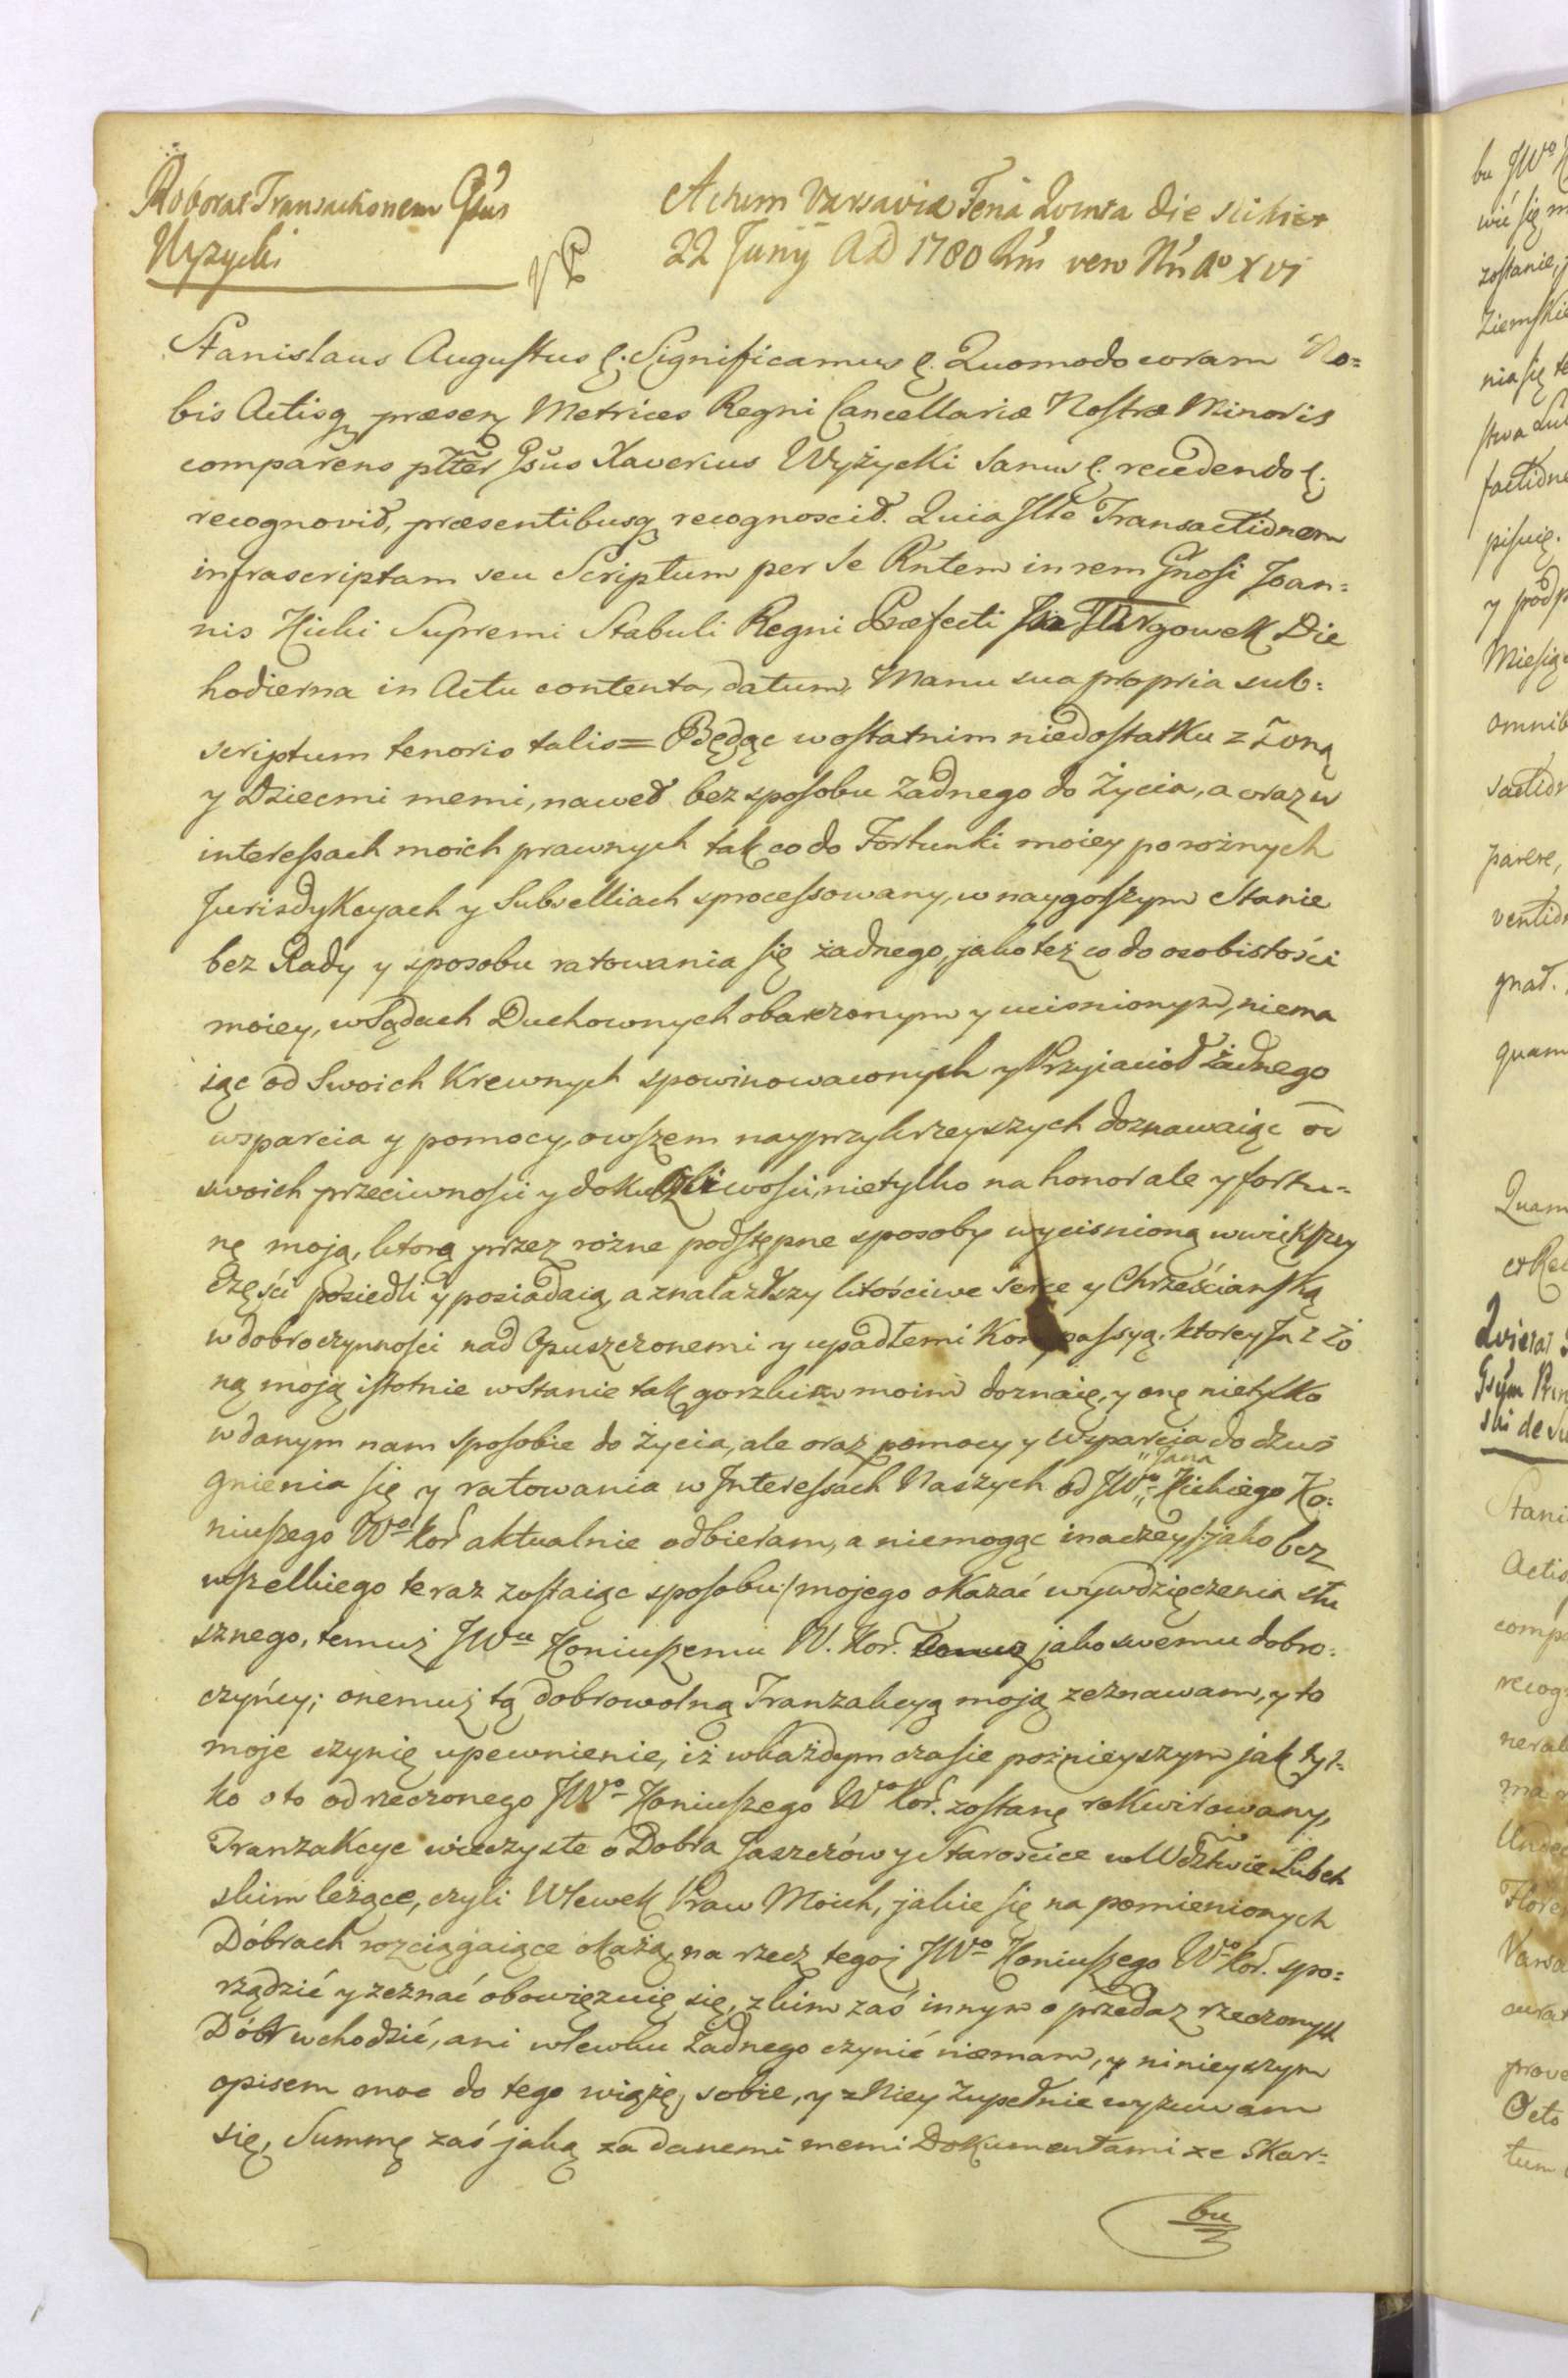 Roborat Transactionem Gsus
Wyzycki
Actum Varsaviæ Feria Quinta die scilicet
22 Junij AD 1780 Rni vero Nri Ao XVI
Stanislaus Augustus &. Significamus &. Quomodo coram No=
bis Actisq præsen Metrices Regni Cancellariæ Nostræ Minoris
comparens plter Gsus Xaverius Wyżycki Sanus &. recedendo &.
recognovit, præsentibusq recognoscit. Quia Ille Transactionem
infrascriptam seu Scriptum per Se Rntem in rem Gnosi Joan=
nis Kicki Supremi Stabuli Regni Præfecti Targowek Die
hodierna in Actu contenta, datum, Manu sua propria sub=
scriptum tenoris talis= Będąc w ostatnim niedostatku z Żoną
y Dziecmi memi, nawet bez sposobu żadnego do Życia, a oraz w
interessach moich prawnych tak co do Fortunki moiey po rożnych
Jurisdykcyach y Subselliach sprocessowany, w naygorszym Stanie
bez Rady y sposobu ratowania się żadnego, jako też co do osobistości
moiey, w Sądach Duchownych obarczonym y ucisnionym, niema
iąc od Swoich Krewnych spowinowaconych y Przyiacioł żadnego
wsparcia y pomocy, owszem nayprzykrzeyszych doznawaiąc od
swoich przeciwności y dokuczliwości, nietylko na honor ale y fortu=
nę moją, ktorą przez rożne podstępne sposoby wycisnioną w większey
Części posiedli y posiadaią, a znalazłszy litościwe serce y Chrześcianską
w dobroczynności nad Opuszczonemi y upadłemi Kompassyą, ktorey Ja z Żo
ną moją istotnie w Stanie tak gorzkim moim doznaię, y onę nietylko
w danym nam sposobie do życia, ale oraz pomocy y wsparcia do dźwi
gnienia się y ratowania w Interessach Naszych od JWo Jana Kickiego Ko=
niuszego Wo Kor aktualnie odbieram, a niemogąc inaczey /:jako bez
wszelkiego teraz zostaiąc sposobu:/ mojego okazać wywdzięczenia słu
sznego, temuż JWu Koniuszemu W. Kor. jako swemu dobro=
czyńcy; onemuż tą dobrowolną Tranzakcyą moją zeznawam, y to
moje czynię upewnienie, iż w każdym czasie poźnieyszym jak tyl=
ko o to od rzeczonego JWo Koniuszego Wo Kor. zostanę rekwirowany,
Tranzakcye wieczyste o Dobra Jaszczów y Starościce w Wdztwie Lubel
skim leżące, czyli Wlewek Praw Moich, jakie się na pomienionych
Dóbrach rozciągaiące okażą, na rzecz tegoż JWo Koniuszego Wo Kor. spo=
rządzić y zeznać obowięzuię się, z kim zaś innym o przedaz rzeczonych
Dóbr wchodzić, ani wlewku żadnego czynić niemam, y ninieyszym
opisem moc do tego wiążę, sobie, y z Niey zupełnie wyzuwam
się, Summę zaś jaką za danemi memi Dokumentami ze Skar=
bu